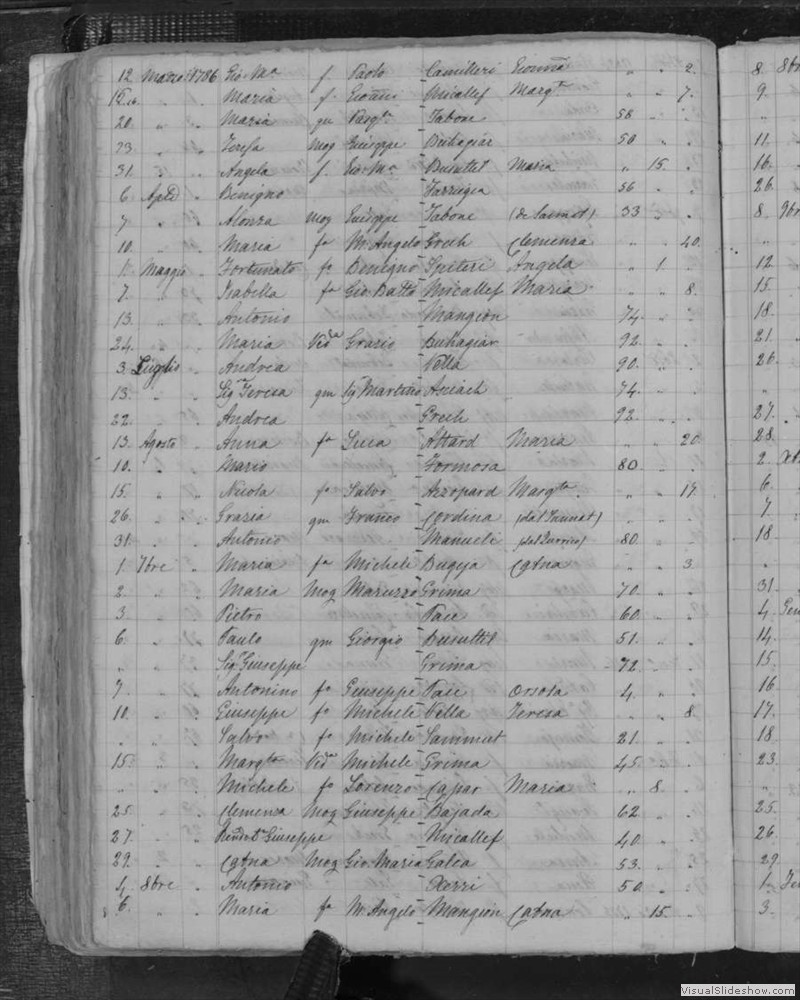 12 Marzo 1786 Gio Ma f. Paolo Camilleri Gionna " " 2. 8. 8bre
15 " " Maria f. Gioanni Micallef Margta " " 7. 9.
20 " " Maria qm Pasqle Tabone 58 " " "
23 " " Teresa Mog Giuseppe Buhagiar 50 " " 11.
31 " " Angela f. Gio Ma Busuttil Maria " 15. " 16.
6 Aple " Benigno Farrugia 56 " " 26.
7 " " Mog Giuseppe Tabone 33 " " 8. 9bre
10. " " Maria fa M. Angelo Grech Clemenza " " 40. "
1. Maggio " Fortunato fo Benigno Spiteri Angela " 1. " 12.
7. " " Isabella fa Gio Batta Micallef Maria " " 8. 15.
13. " " Antonio Mangion 74. " " 18.
24. " " Maria Veda Grazio Buhagiar 92. " " 21.
3. Luglio " Andrea Vella 90. " " 26.
13. " " Sigra Teresa qm Sigr Martino 74. " " "
22. " " Andrea Grech 92. " " 27.
13. Agosto " Anna fa Luca Attard Maria " " 20 28.
10. " " Mario Formosa 80. " " 2. Xbre
15. " " Nicola fo Salvo Azzopard Margta " " 17. 6.
26. " " Grazia qm Franco Cordina " " " 7.
31. " " Antonio Manueli 80. " " 18
1. 7bre " Maria fa Michele Bugeja Catna " " 3.
2. " " Maria Mog Maruzzo Grima 70. " " 31.
3. " " Pietro Pace 60. " " 4.
6. " " Paulo qm Giorgio Busuttil 51. " " 14.
" " " Sigr Giuseppe Grima 72. " " 15.
7. " " Antonino fo Giuseppe Pace Orsola 4. " " 16
10. " " Giuseppe fo Michele Vella Teresa " " 8. 17.
" " " Salvo fo Michele Sammut 21. " " 18
15. " " Margta Veda Michele Grima 45. " " 23.
" " " Michele fo Lorenzo Capar Maria " 8. " "
25. " " Clemenza Mog Giuseppe Bajada 62. " " 25.
27. " " Giuseppe Micallef 40. " " 26.
29. " " Catna Mog Gio Maria Galea 53. " " 29
4. 8bre " Antonio Xerri 50. " " 1.
6. " " Maria fa M. Angelo Mangion Catna " 15. " 3.
VisualSlideshow.com